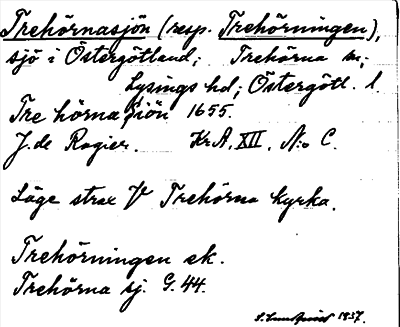 Trehörnasjön (resp. Trehörningen),
sjö i Östergötland; Trehörna sn;
Lysings hd; Östergötl. l.
Tre hörna siön 1655.
J. de Rogier. Kr A. XII. N:o C.
Läge strax V Trehörna kyrka.
Trehörningen ek.
Trehörna sj. G. 44.
S. Lundqvist 1937.